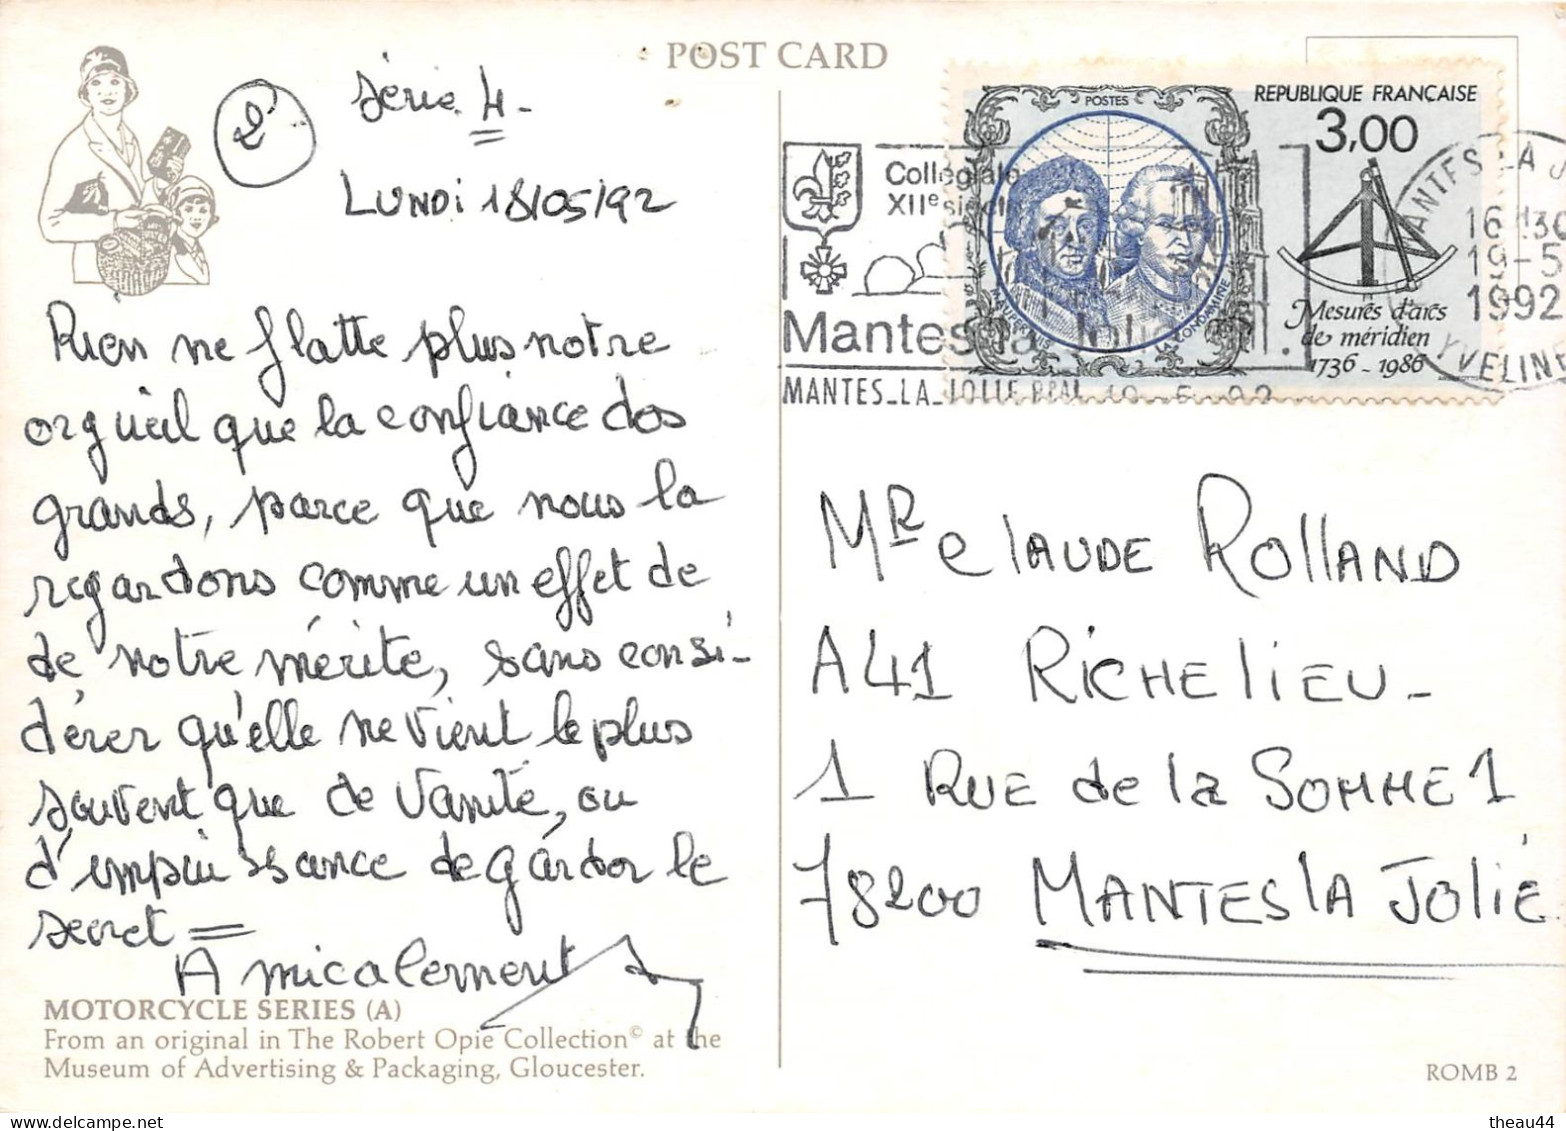 POST CARD
2
Série 4-
LUNDi 18/05/92
Rien ne flatte plus notre
orgueil que la confiance dos
grands, parce que nous la
regardons comme un effet de
de notre mérite, sans consi-
dérer qu'elle ne vient le plus
souvent que de vanité, ou
d'impuissance de garder le
secret =
Amicalement
MOTORCYCLE SERIES (A)
From an original in The Robert Opie Collection© at the
Museum of Advertising & Packaging, Gloucester.
POSTES
REPUBLIQUE FRANÇAISE
3,00
MAUPERTUIS
LA CONDAMINE
Mesures d'arcs
de méridien
1736 - 1986
Collégiale
XIIe siècle
Mantes la Jolie
MANTES-LA-JOLIE PPAL 19-5-92
MANTES-LA-J
16H30
19-5
1992
YVELINE
MR Claude ROllAND
A41 RiCHElIEU-
1 RUE de la SOMME 1
78200 MANTES lA JOliE
ROMB 2
theau44